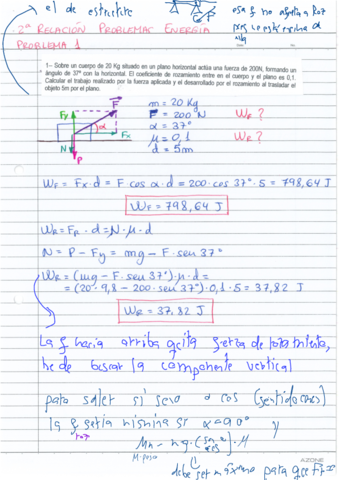 el de estructure
esa f no afecta a Roz
pues
2ª RELACIÓN PROBLEMAS ENERGÍA
PROBLEMA 1
1.- Sobre un cuerpo de 20 Kg situado en un plano horizontal actúa una fuerza de 200N, formando un
ángulo de 37º con la horizontal. El coeficiente de rozamiento entre el cuerpo y el plano es 0,1.
Calcular el trabajo realizado por la fuerza aplicada y el desarrollado por el rozamiento al trasladar el
objeto 5m por el plano.
Fy F α Fx N P
m = 20 Kg
F = 200 N WF ?
α = 37º
μ = 0,1 WR ?
d = 5m
WF = Fx · d = F cos α · d = 200 · cos 37º · 5 = 798,64 J
WF = 798,64 J
WR = FR · d = N · μ · d
N = P - Fy = mg - F · sen 37º
WR = (mg - F · sen 37º) · μ · d =
= (20 · 9,8 - 200 · sen 37º) · 0,1 · 5 = 37,82 J
WR = 37,82 J
La f hacia arriba quita fuerza de rozamiento,
he de buscar la componente vertical
para saber si seno o cos (sentido común)
la f sería mínima si α = 90º y
roz
debe ser máximo para que
AZONE